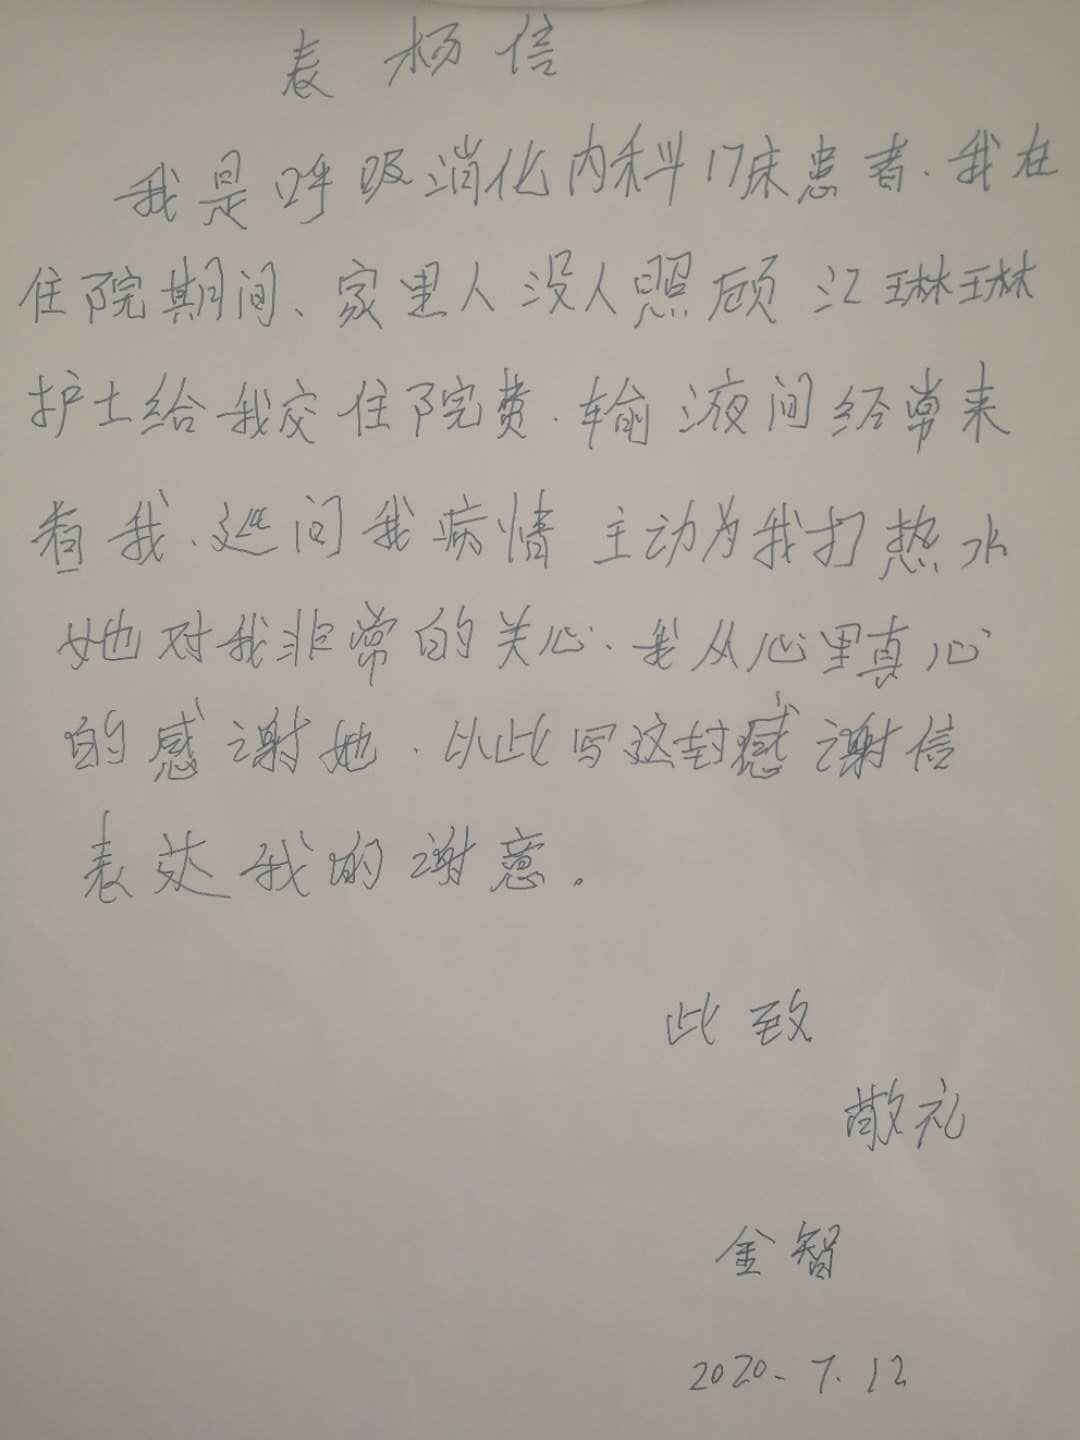 表杨信
我是呼吸消化内科17床患者.我在
住院期间、家里人没人照顾 江琳琳
护士给我交住院费.输液间经常来
看我、还问我病情 主动为我打热水
她对我非常的关心.我从心里真心
的感谢她.以此写这封感谢信
表达我的谢意.
此致
敬礼
金智
2020.7.12